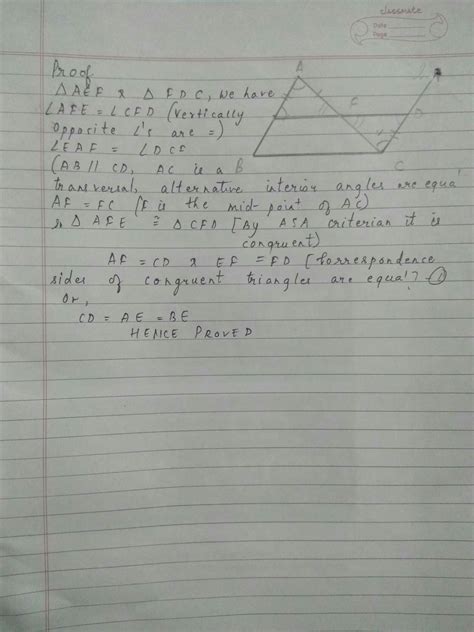 classmate
Date
Page
Proof
△ AEF & △ FDC, we have
∠AFE = ∠CFD (vertically
opposite ∠'s are =)
∠EAF = ∠DCF
(AB || CD, AC is a
transversal, alternative interior angles are equal
AF = FC (F is the mid-point of AC)
△ AFE ≅ △ CFD [By ASA criterian it is
congruent)
AE = CD & EF = FD [Correspondence
sides of congruent triangles are equal] - ①
Or,
CD = AE = BE
HENCE PROVED
A
F
B
C
l